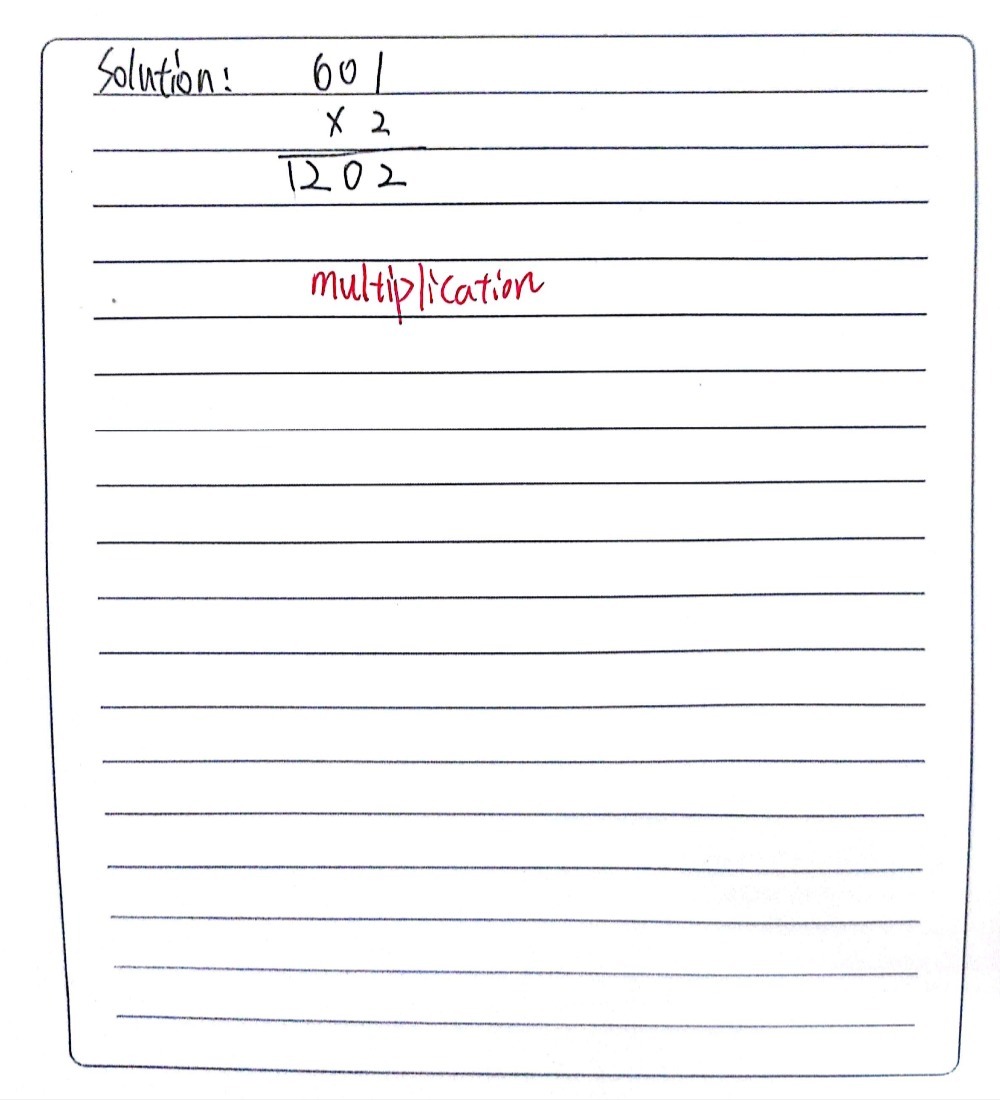 Solution: 601
× 2
1202
multiplication